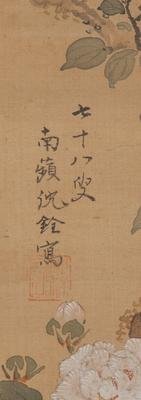 七十八叟
南蘋沈銓寫